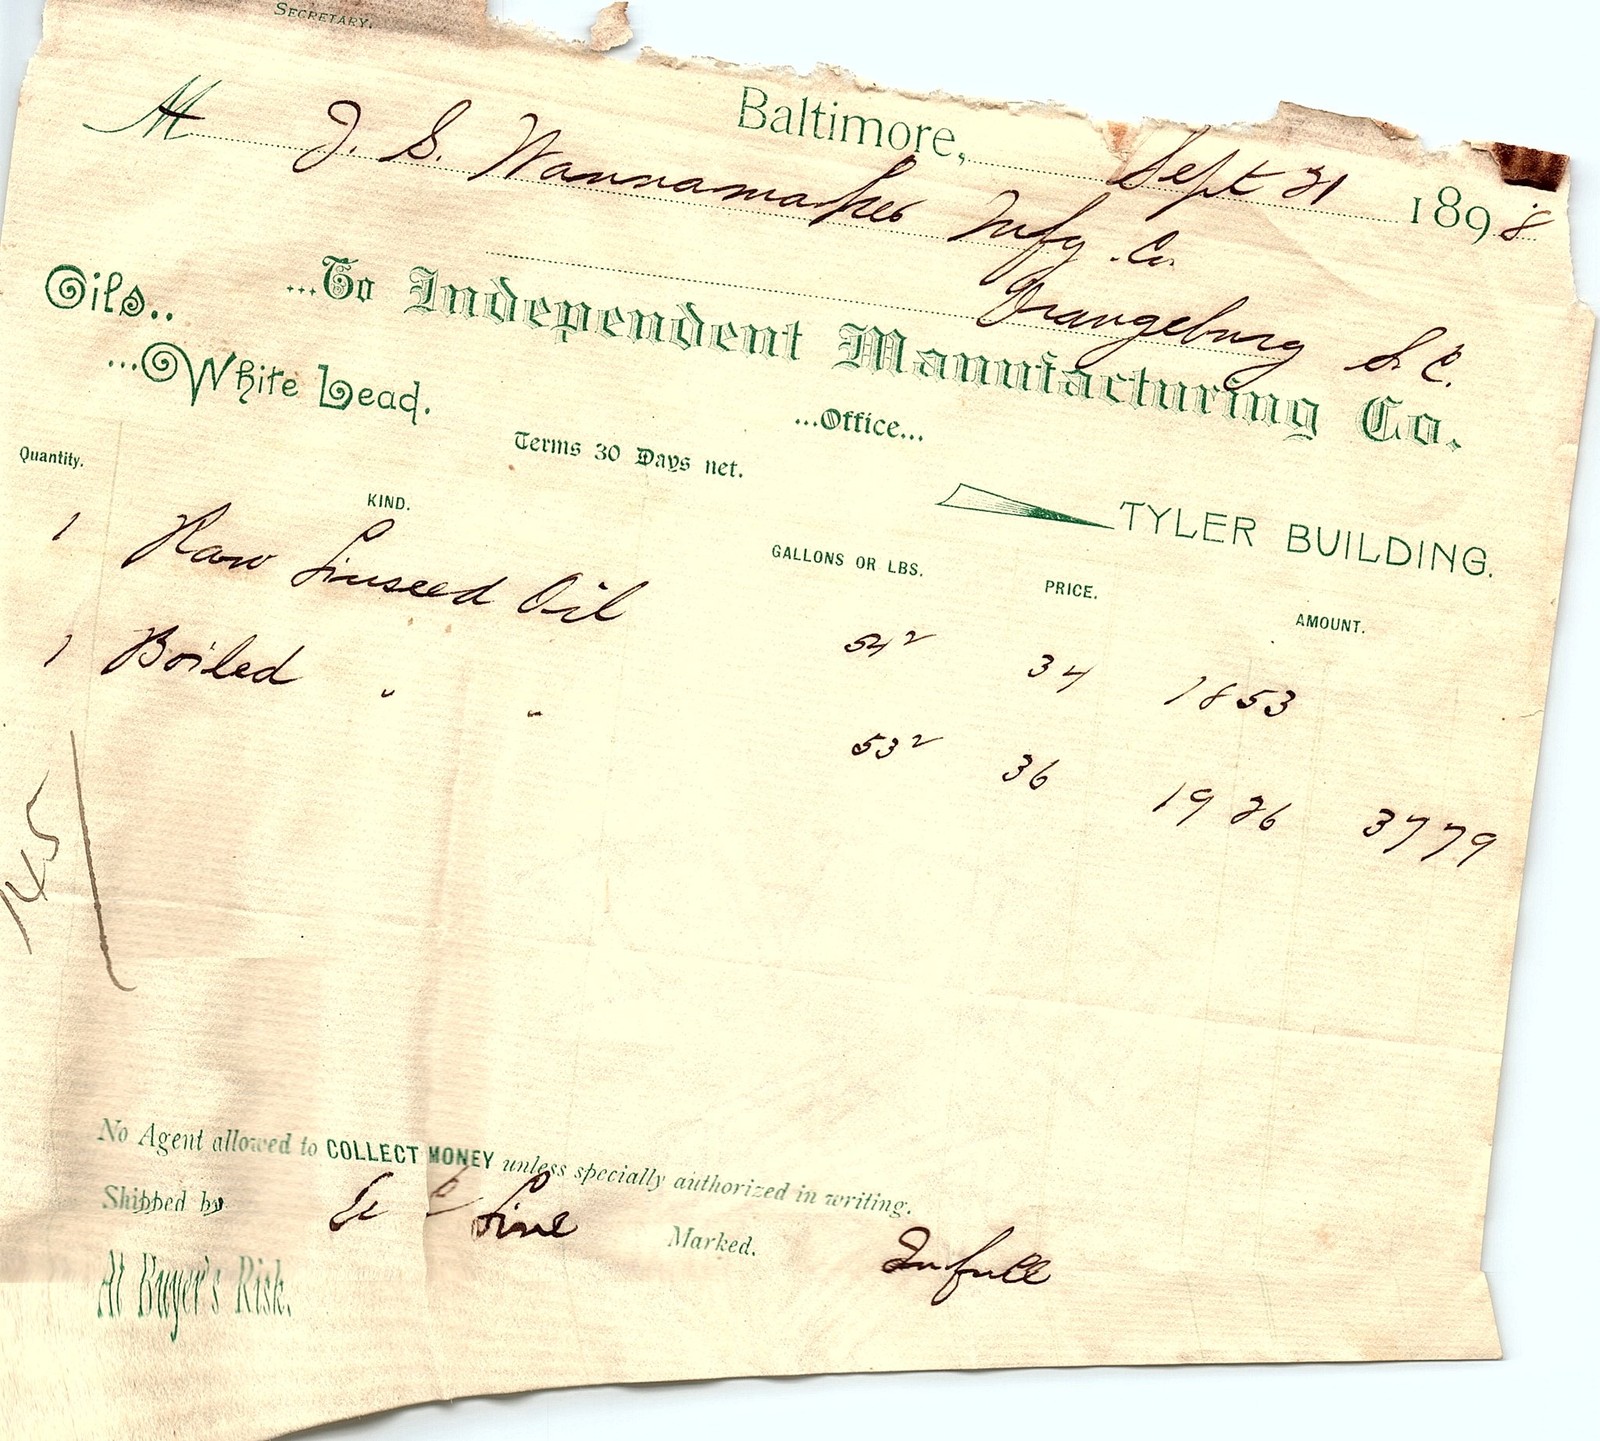 SECRETARY.
Baltimore, Sept 21 1898
M J. S. Wannamaker Mfg. Co.
Orangeburg S. C.
Oils..
...To Independent Manufacturing Co.
...White Lead.
...Office...
Terms 30 Days net.
TYLER BUILDING.
Quantity. KIND. GALLONS OR LBS. PRICE. AMOUNT.
1 Raw Linseed Oil 54² 34 1853
1 Boiled " " 53² 36 19 26 3779
145
No Agent allowed to COLLECT MONEY unless specially authorized in writing.
Shipped by Line Marked. In full
At Buyer's Risk.